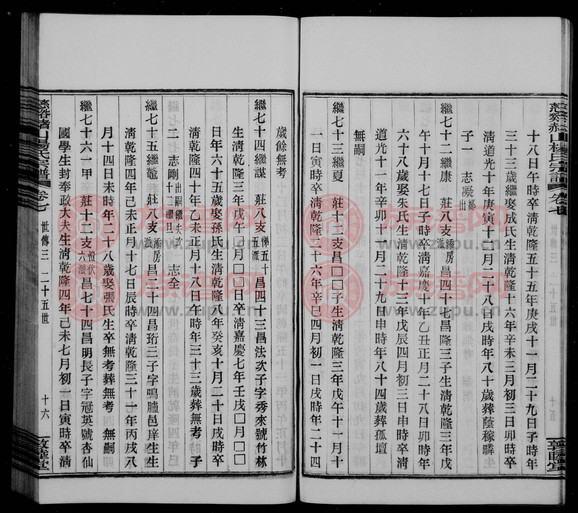 十八日午時卒清乾隆五十五年庚戌十一月二十九日子時年
三十三歲繼娶成氏生清乾隆十六年辛未三月初三日卯時卒
清道光十年庚寅十月二十八日戌時年八十歲葬蔭稼疇生
子一 志
繼七十二繼康 莊八支 房昌四十七昌隆三子生清乾隆三年戊
午十月十七日子時卒清嘉慶十年乙丑正月二十八日卯時年
六十八歲娶朱氏生清乾隆十三年戊辰四月初三日午時卒清
道光十一年辛卯十一月二十九日申時年八十四歲葬孤墳
無嗣
繼七十三繼夏 莊十二支昌□□子生清乾隆三年戊午十一月十
一日寅時卒清乾隆二十六年辛巳四月初一日戌時年二十四
歲餘無考
繼七十四繼謀 莊八支 昌四十三昌法次子字秀來號竹林
生清乾隆四年己未□月□□日卒清嘉慶七年壬戌□月□□
日年六十五歲娶孫氏生清乾隆八年癸亥十月二十日戌時卒
清乾隆四十年乙未正月十八日午時年三十三歲葬無考 子
二 志剛 志全
繼七十五繼鼇 莊八支 房昌三十四昌珩三子字鳴臚邑庠生生
清乾隆四年己未正月十七日辰時卒清乾隆三十一年丙戌八
月十四日未時年二十八歲娶張氏生卒無考葬無考 無嗣
繼七十六一甲 莊十二支 昌七十四昌明長子字冠英號杏仙
國學生封奉政大夫生清乾隆四年己未七月初一日寅時卒清
卷七 世傳三 二十五世
十六